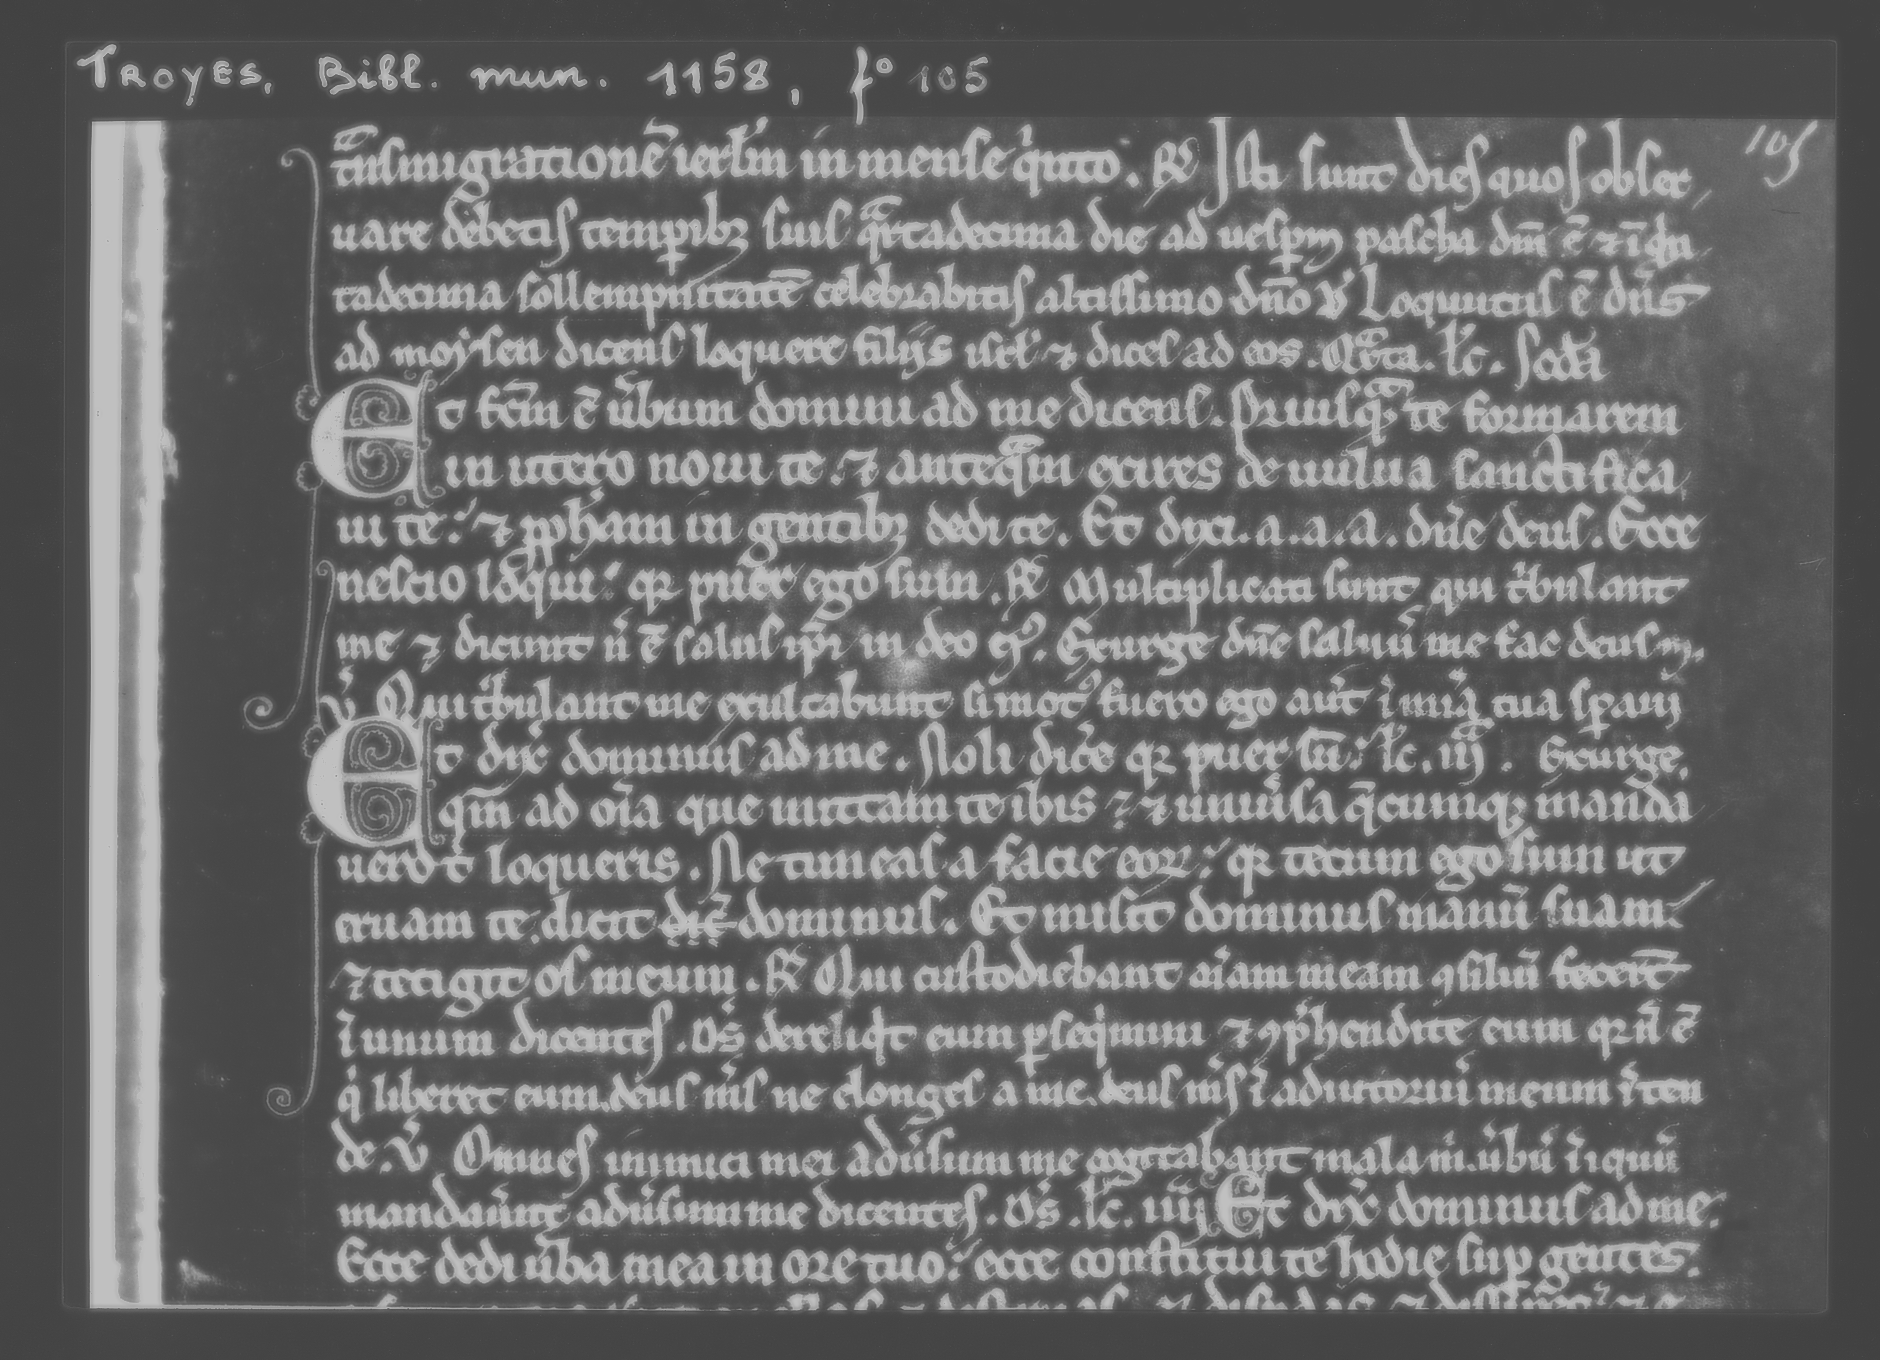 TROYES, Bibl. mun. 1158, fº 105
105
t̃nsmigrationẽ ierl̃m in mense q̇nto. ℟ Isti sunt dies quos obser
uare debetis temꝑibꝫ suis q̃rtadecima die ad uesꝑm pascha dm̃ ẽ ⁊ ĩ q̇n
tadecima sollempnitatẽ celebrabitis altissimo dño ℣ Loquutus ẽ dñs
ad moysen dicens loquere filijs isrl̃ ⁊ dices ad eos. Q̃rta. lc̃. scd̃a
Et fcm̃ ẽ u̾bum domini ad me dicens. Priusq̃ te formarem
in utero noui te. ⁊ anteq̃m exires de uulua sanctifica
ui te. ⁊ ꝓph̃am in gentibꝫ dedi te. Et dixi. a. a. a. dñe deus. Ecce
nescio loqui. qꝛ puer ego sum. ℟ Multiplicati sunt qui tͥbulant
me ⁊ dicunt ñ ẽ salus ip̃i in deo eꝰ. Exurge dñe saluũ me fac deus m̃.
℣ Qui tͥbulant me exultabunt si motꝰ fuero ego aut̃ ĩ mĩa tua sꝑaui
Et dix̃ dominus ad me. Noli dic̾e qꝛ puer sũ. lc̃. iij. Exurge.
qm̃ ad om̃ia que mittam te ibis. ⁊ uniu̾sa q̃cumqꝫ manda
uero t̾ loqueris. Ne timeas a facie eoꝝ. qꝛ tecum ego sum ut
eruam te dicit dic̃ dominus. Et misit dominus manũ suam.
⁊ tetigit os meum. ℟ Qui custodiebant aĩam meam ꝯsiliũ fecer̃t
ĩ unum dicentes. Dš dereliq̇t eum ꝑseq̇mini ⁊ ꝯp̾hendite eum qꝛ ñ ẽ
q̇ liberet eum. deus m̃s ne elonges a me. deus m̃s ĩ adiutoriũ meum ĩten
de. ℣ Omnes inimici mei adu̾sum me cogitabant mala m̃. u̾bũ ĩiquũ
mandau̾nt adu̾sum me dicentes. Dš. lc̃. iiij Et dix̃ dominus ad me.
Ecce dedi u̾ba mea in ore tuo. ecce constitui te hodie suꝑ gentes.